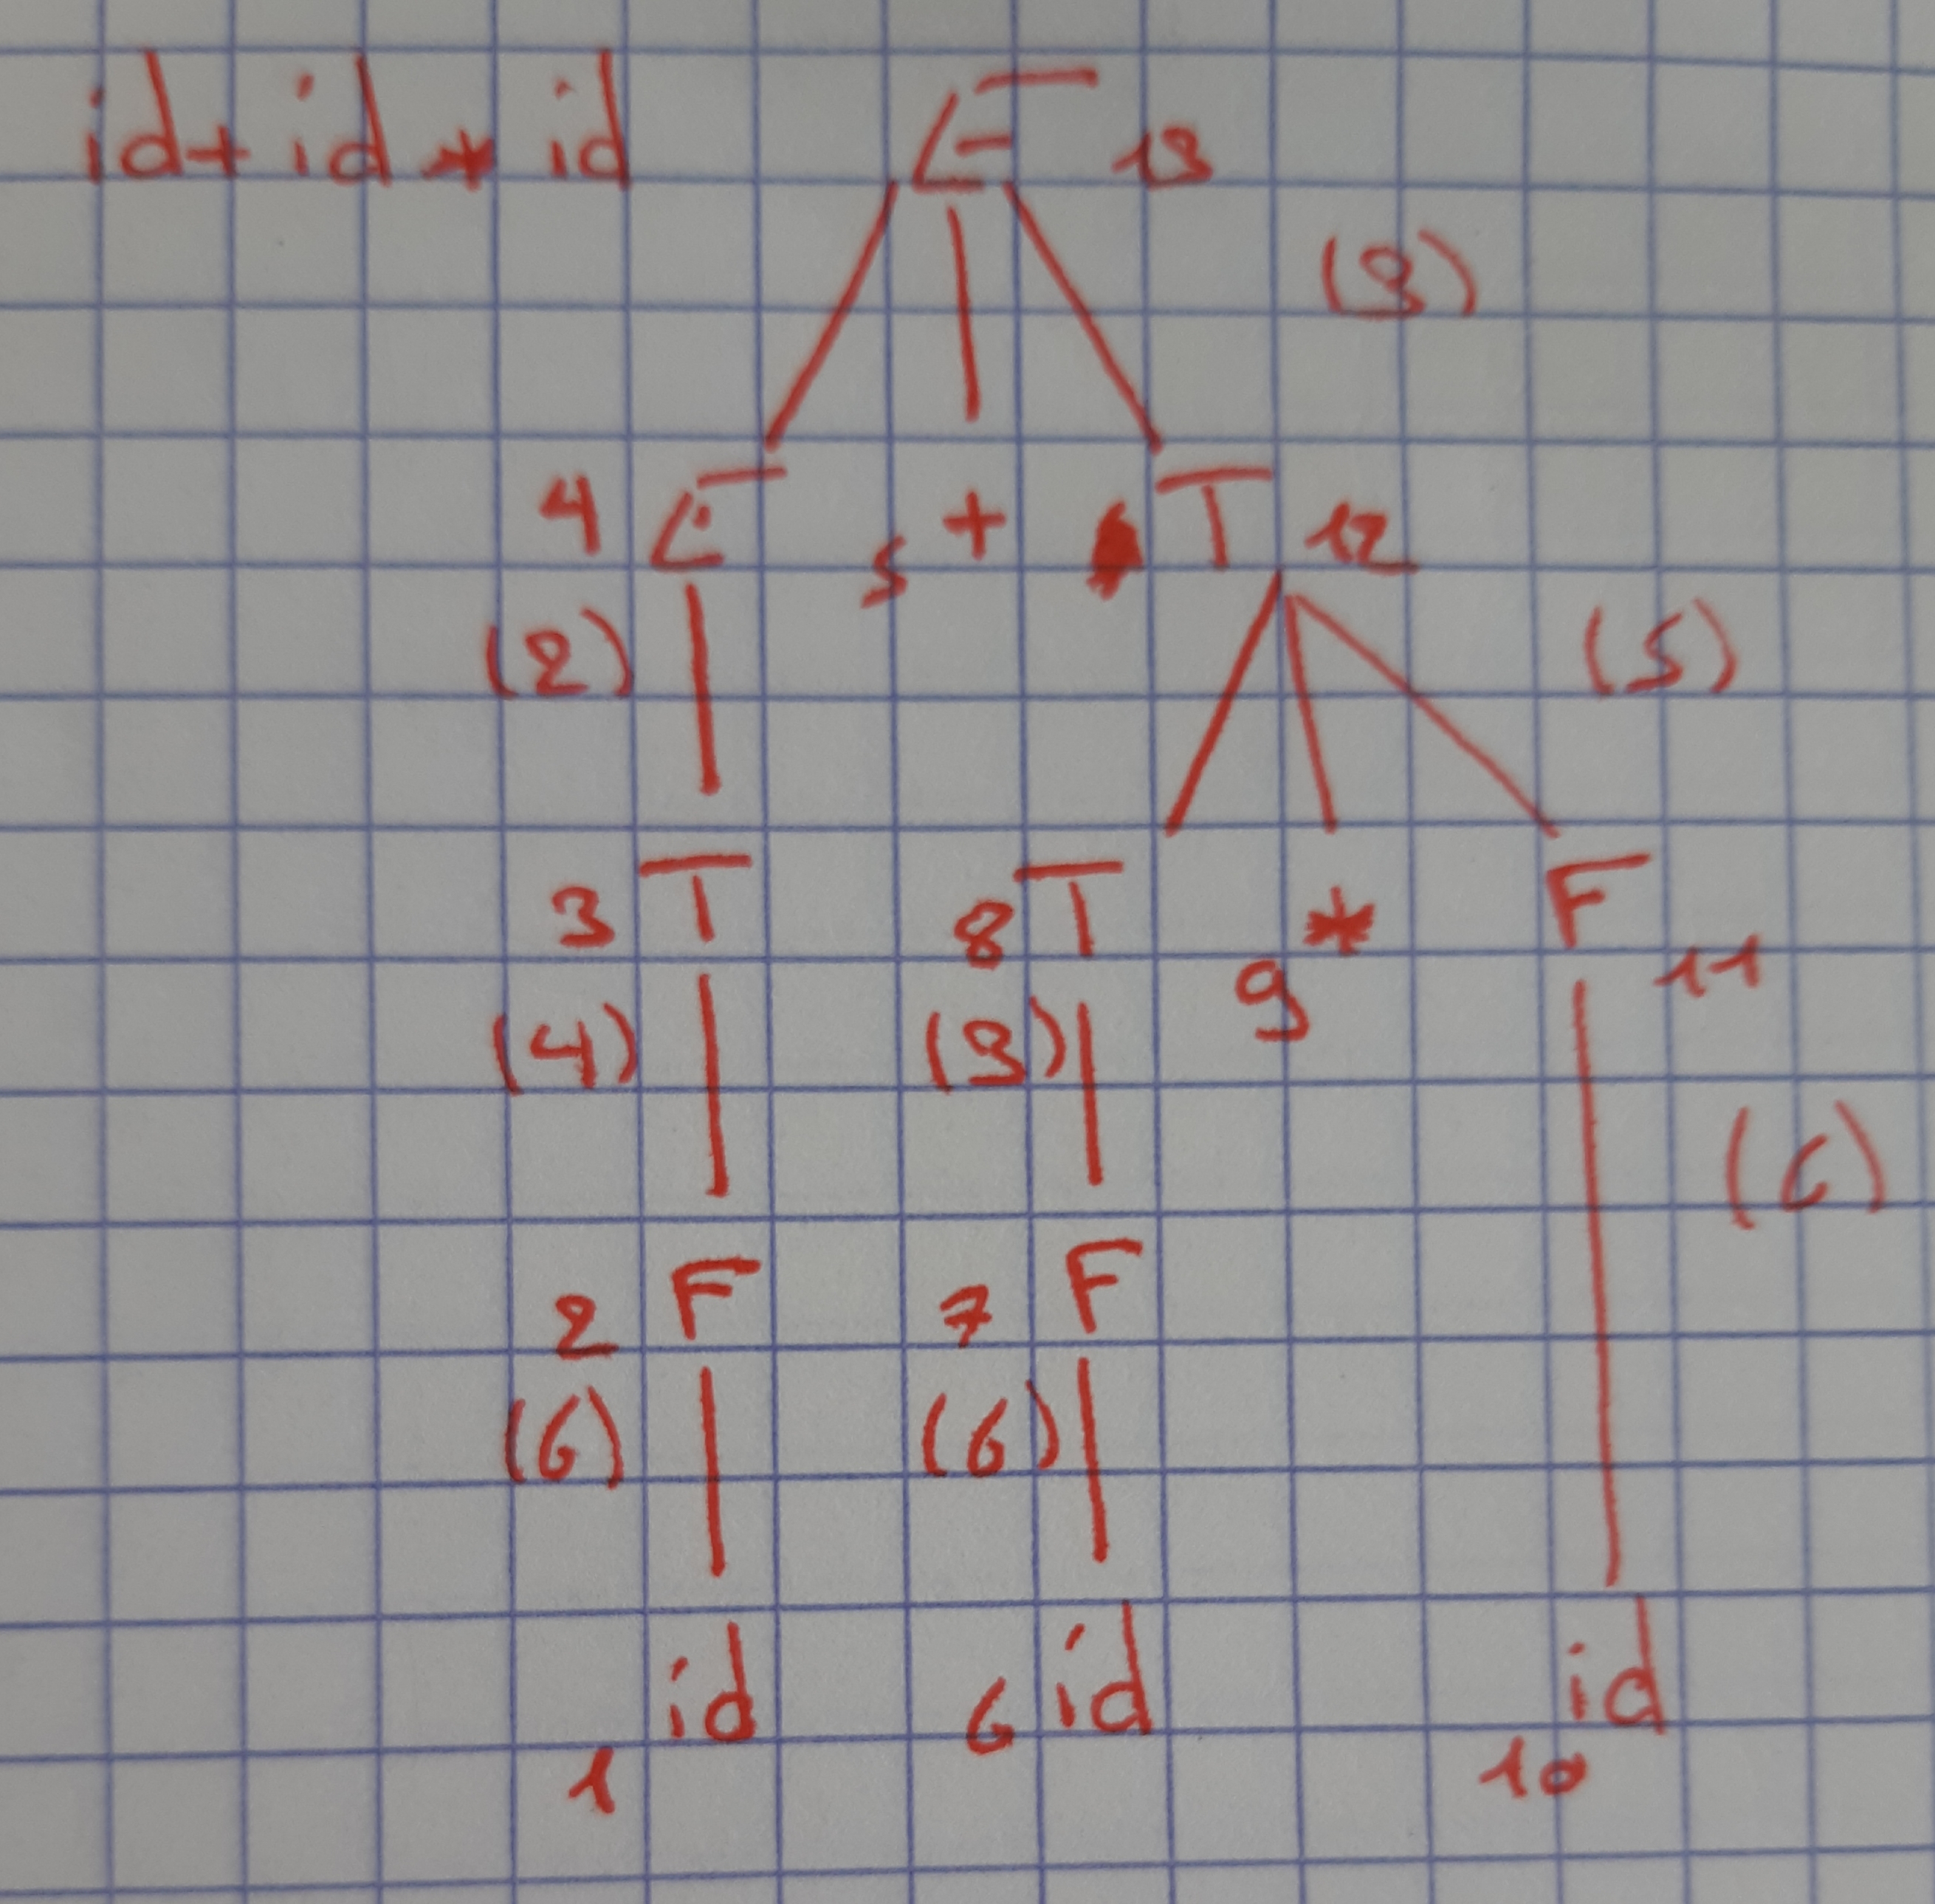 id + id * id
E 13
(3)
4 E 5 + T 12
(2) (5)
3 T 8 T 9 * F 11
(4) (3) (6)
2 F 7 F
(6) (6)
1 id 6 id 10 id